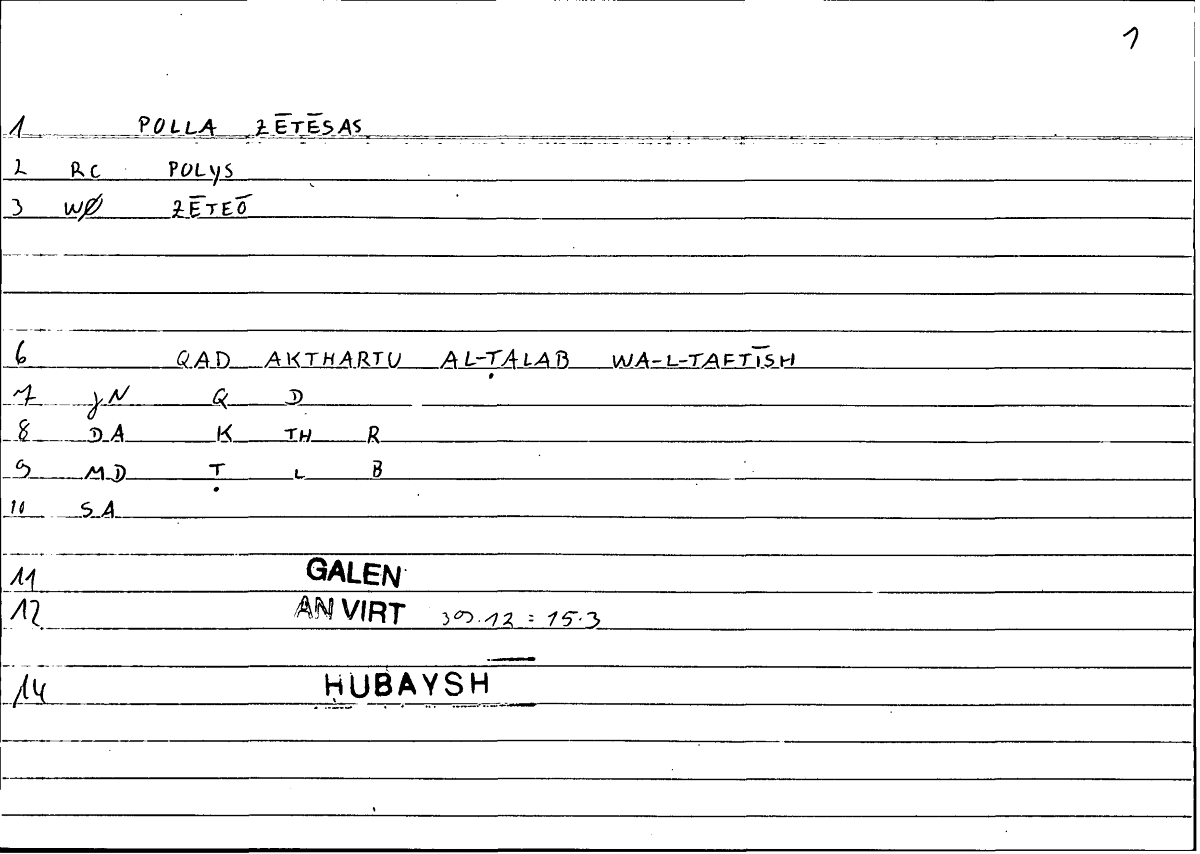 1
1 POLLA ZĒTĒSAS
2 RC POLYS
3 WØ ZĒTEŌ
6 QAD AKTHARTU AL-ṬALAB WA-L-TAFTĪSH
7 JN Q D
8 DA K TH R
9 MD Ṭ L B
10 SA
11 GALEN
12 AN VIRT 39.12 = 15.3
14 HUBAYSH